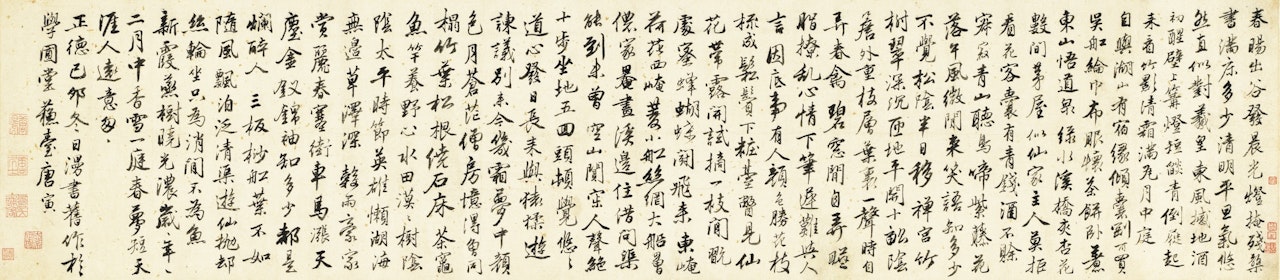 春暘出谷發晨光燈掩殘檠
書滿床多少清明平旦氣悠
然直似對羲皇東風堿地酒
初醒壁上篝燈燼燄青倒屣起
來看竹影清霜滿瓦月中庭
自與湖山有宿緣傾囊剛可買
吳船綸巾布服懷茶餅臥煮
東山悟道泉綠水溪橋夾杏花
數間茅屋似仙家主人莫拒
看花客囊有青錢酒不賒
寂寂青山聽鳥啼紫藤花
落午風微閒來笑語知多少
不覺松陰半日移禪宮竹
樹翠深沉匝地平開十畝陰
簷外重枝層葉裏一聲時自
弄春禽碧窓閒自弄
脂撩亂心情下筆遲難與人
言因底事有人顏色勝花枝
梳成鬆鬢下粧臺瞥見仙
花帶露開試摘一枝閒
處蜜蜂蝴蝶鬪飛來東崦
荷花西崦菱大船絲網大船罾
儂家罨畫溪邊住借問渠
能到未曾空山閴寂人聲絕
十步坐地五回頭頓覺悠悠
道心發日長來與猿猱遊
諫議別來今幾霜夢中顏
色月蒼茫僧房憶得曾同
榻竹葉松根繞石床茶竈
魚竿養野心水田漠漠樹陰
陰太平時節英雄懶湖海
無邊草澤深穀雨豪家
賞麗春塞街車馬漲天
塵金釵錦袖知多少都是
爛醉人三板桫船葉不如
隨風飄泊泛清渠遊仙抛却
絲輪坐只為消閒不為魚
新霞蒸樹曉光濃歲歲年年
二月中香雪一庭春夢短天
涯人遠意匆匆
正德己卯冬日漫書舊作於
學圃堂蘇臺唐寅